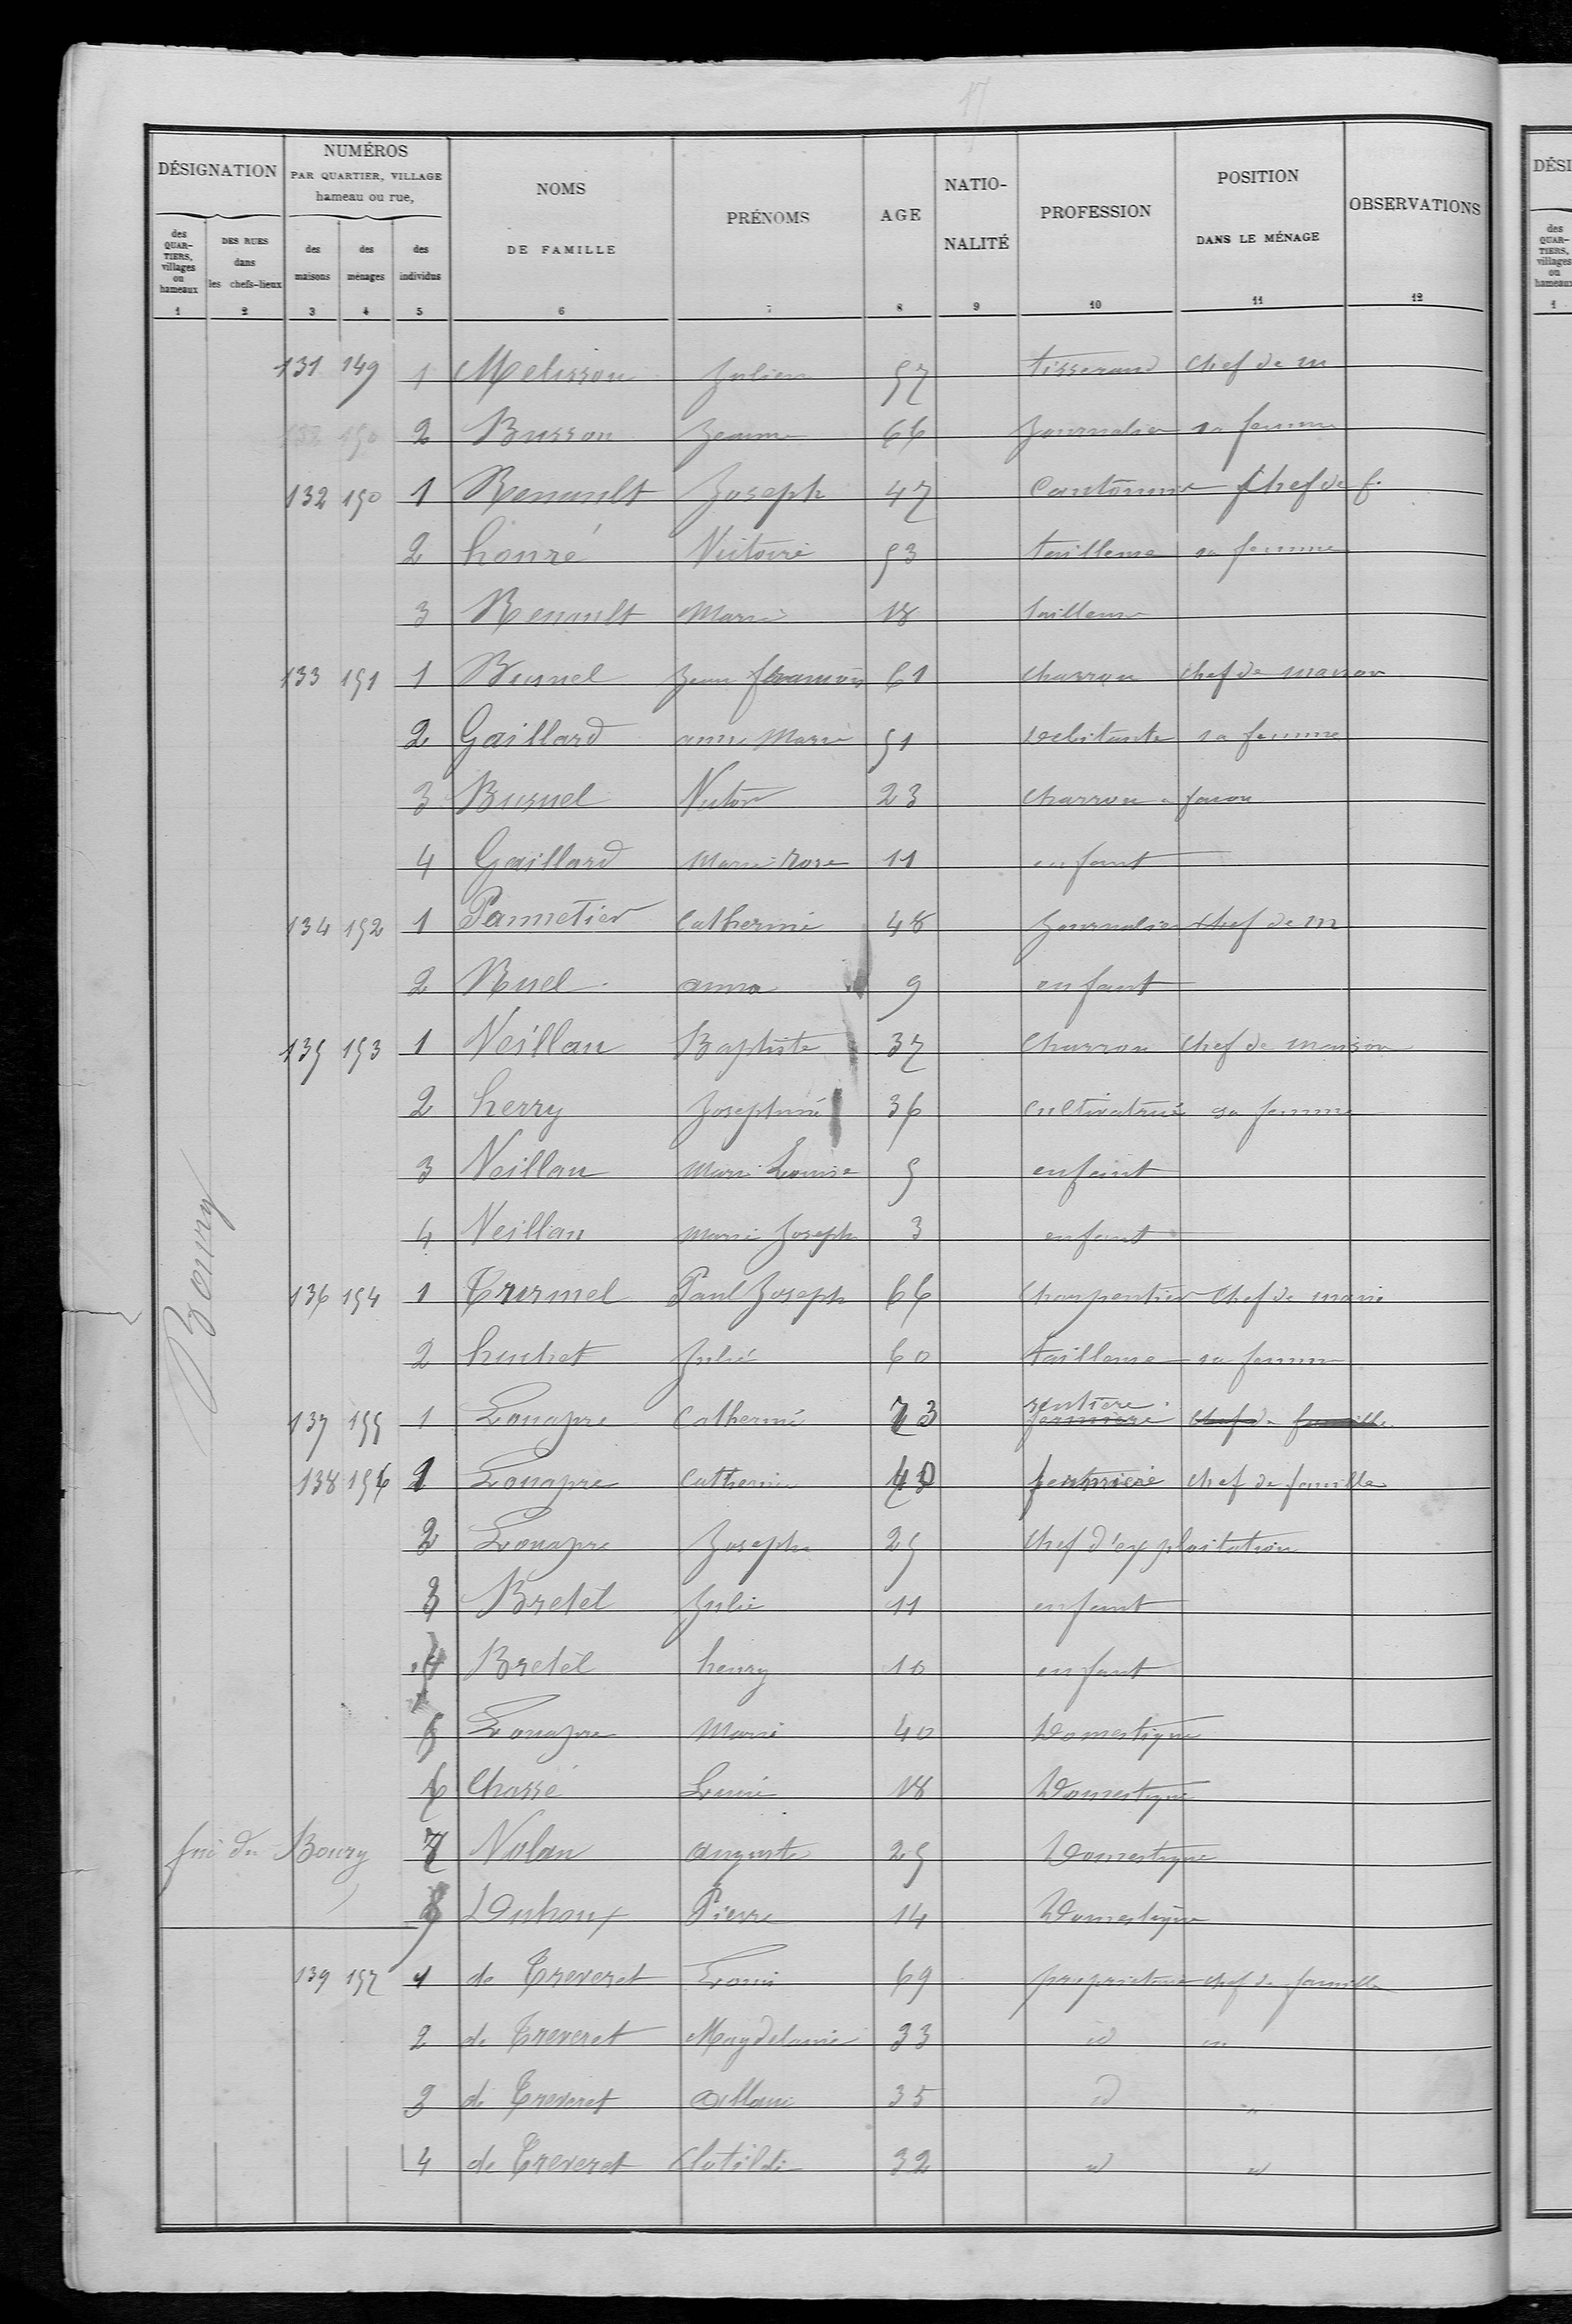 17
DÉSIGNATION
NUMÉROS
PAR QUARTIER, VILLAGE
hameau ou rue,
NOMS
DE FAMILLE
PRÉNOMS
AGE
NATIO-
NALITÉ
PROFESSION
POSITION
DANS LE MÉNAGE
OBSERVATIONS
des QUAR-TIERS, villages ou hameaux
DES RUES dans les chefs-lieux
des maisons
des ménages
des individus
1 2 3 4 5 6 7 8 9 10 11 12
131 149 1 Melisson Julien 57 tisserand chef de m
2 Busson Jeanne 66 Journalier sa femme
132 150 1 Renault Joseph 47 Cantonnier Chef de f.
2 honré Victoire 53 tailleuse sa femme
3 Renault Marie 18 tailleuse
133 151 1 Busnel Jean francois 61 charron chef de maison
2 Gaillard anne Marie 51 debitante sa femme
3 Busnel Victor 23 charron a facon
4 Gaillard Marie rose 11 enfant
134 152 1 Pannetier Catherine 48 Journalier chef de m
2 Ruel anna 9 enfant
135 153 1 Veillau Baptiste 37 Charron chef de maison
2 herry Josephine 36 Cultivatrice sa femme
3 Veillau Marie Louise 5 enfant
4 Veillau Marie Joseph 3 enfant
Bourg
136 154 1 Trurmel Paul Joseph 66 Charpentier Chef de
2 huchet Julie 60 tailleuse sa femme
137 155 1 Louapre Catherine 73 rentiere fermiere chef de famille
138 156 1 Louapre Catherine 40 chef de famille
2 Louapre Joseph 25 chef d'exploitation
3 Bretel Julie 11 enfant
4 Bretel henry 10 enfant
5 Louapre Marie 40 Domestique
6 Chassé 18 Domestique
fin du Bourg 7 Nolan auguste 25 Domestique
8 Duhoux Pierre 14 Domestique
139 157 1 de Treveret Louis 69 proprietaire chef de famille
2 de Treveret Magdelaine 33 id
3 de Treveret 35 id "
4 de Treveret Clotilde 32 id id
DÉSI
des QUAR-TIERS, villages ou hameaux
1